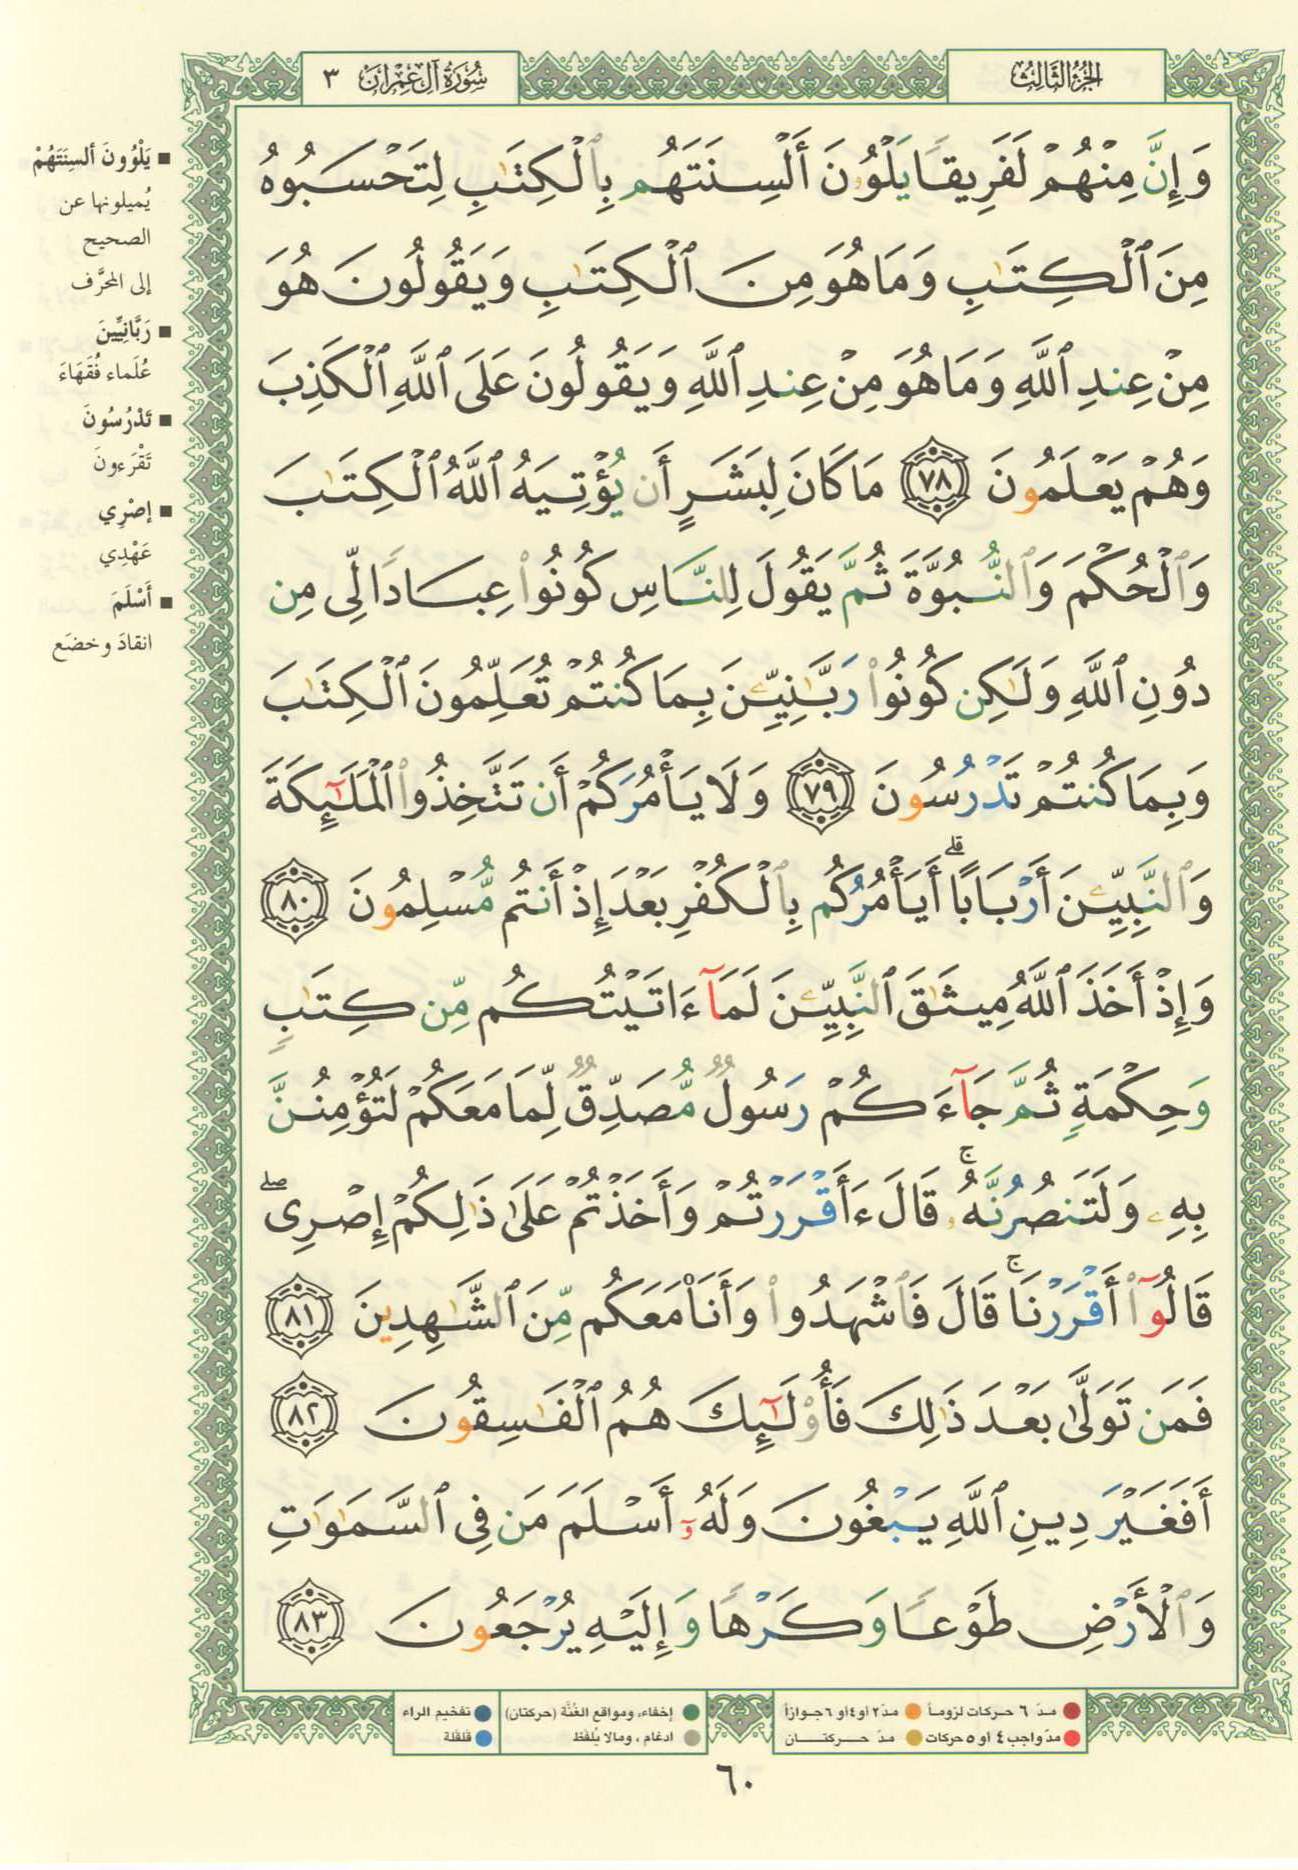 الجُزْءُ الثَّالِثُ
سُورَةُ آلِ عِمْرَانَ ٣
وَإِنَّ مِنْهُمْ لَفَرِيقًا يَلْوُۥنَ أَلْسِنَتَهُم بِٱلْكِتَٰبِ لِتَحْسَبُوهُ
مِنَ ٱلْكِتَٰبِ وَمَا هُوَ مِنَ ٱلْكِتَٰبِ وَيَقُولُونَ هُوَ
مِنْ عِندِ ٱللَّهِ وَمَا هُوَ مِنْ عِندِ ٱللَّهِ وَيَقُولُونَ عَلَى ٱللَّهِ ٱلْكَذِبَ
وَهُمْ يَعْلَمُونَ ٧٨ مَا كَانَ لِبَشَرٍ أَن يُؤْتِيَهُ ٱللَّهُ ٱلْكِتَٰبَ
وَٱلْحُكْمَ وَٱلنُّبُوَّةَ ثُمَّ يَقُولَ لِلنَّاسِ كُونُوا۟ عِبَادًا لِّى مِن
دُونِ ٱللَّهِ وَلَٰكِن كُونُوا۟ رَبَّٰنِيِّۦنَ بِمَا كُنتُمْ تُعَلِّمُونَ ٱلْكِتَٰبَ
وَبِمَا كُنتُمْ تَدْرُسُونَ ٧٩ وَلَا يَأْمُرَكُمْ أَن تَتَّخِذُوا۟ ٱلْمَلَٰٓئِكَةَ
وَٱلنَّبِيِّۦنَ أَرْبَابًا ۗ أَيَأْمُرُكُم بِٱلْكُفْرِ بَعْدَ إِذْ أَنتُم مُّسْلِمُونَ ٨٠
وَإِذْ أَخَذَ ٱللَّهُ مِيثَٰقَ ٱلنَّبِيِّۦنَ لَمَآ ءَاتَيْتُكُم مِّن كِتَٰبٍ
وَحِكْمَةٍ ثُمَّ جَآءَكُمْ رَسُولٌ مُّصَدِّقٌ لِّمَا مَعَكُمْ لَتُؤْمِنُنَّ
بِهِۦ وَلَتَنصُرُنَّهُۥ ۚ قَالَ ءَأَقْرَرْتُمْ وَأَخَذْتُمْ عَلَىٰ ذَٰلِكُمْ إِصْرِى ۖ
قَالُوٓا۟ أَقْرَرْنَا ۚ قَالَ فَٱشْهَدُوا۟ وَأَنَا۠ مَعَكُم مِّنَ ٱلشَّٰهِدِينَ ٨١
فَمَن تَوَلَّىٰ بَعْدَ ذَٰلِكَ فَأُو۟لَٰٓئِكَ هُمُ ٱلْفَٰسِقُونَ ٨٢
أَفَغَيْرَ دِينِ ٱللَّهِ يَبْغُونَ وَلَهُۥٓ أَسْلَمَ مَن فِى ٱلسَّمَٰوَٰتِ
وَٱلْأَرْضِ طَوْعًا وَكَرْهًا وَإِلَيْهِ يُرْجَعُونَ ٨٣
يَلْوُونَ ألسِنَتَهُمْ
يُميلونها عن
الصحيح
إلى المحرَّف
رَبَّانِيِّينَ
عُلَماء فُقَهَاءَ
تَدْرُسُونَ
تَقْرَءونَ
إصْرِي
عَهْدِي
أَسْلَمَ
انقادَ وخضَع
مدّ ٦ حركات لزوماً مدّ ٢ او ٤ او ٦ جوازاً
مدّ واجب ٤ أو ٥ حركات مدّ حركتان
إخفاء، ومواقع الغُنَّة (حركتان) تفخيم الراء
ادغام، ومالا يُلفَظ قلقلة
٦٠